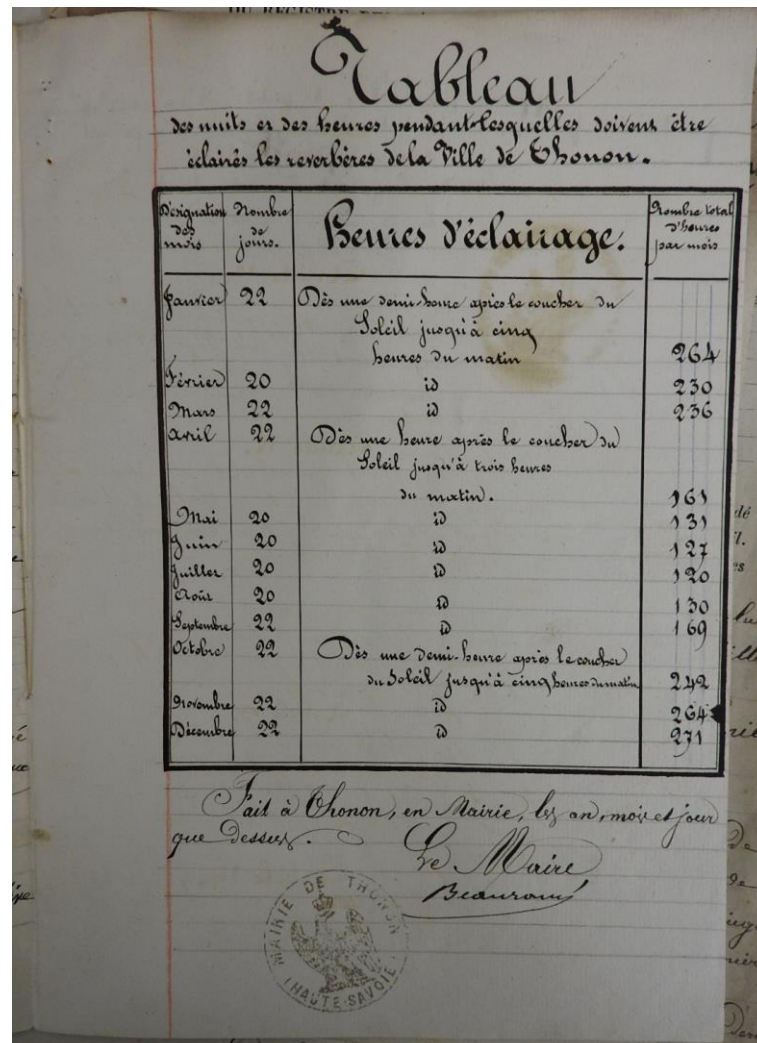 DU REGISTRE DE
Tableau
des nuits et des heures pendant lesquelles doivent être
éclairés les reverbères de la Ville de Thonon.
Désignation des mois Nombre de jours. Heures d'éclairage. Nombre total d'heures par mois
Janvier 22 Dès une demi-heure après le coucher du
Soleil jusqu'à cinq
heures du matin 264
Février 20 id 230
Mars 22 id 236
Avril 22 Dès une heure après le coucher du
Soleil jusqu'à trois heures
du matin. 161
Mai 20 id 131
Juin 20 id 127
Juillet 20 id 120
Août 20 id 130
Septembre 22 id 169
Octobre 22 Dès une demi-heure après le coucher
du Soleil jusqu'à cinq heures du matin 242
Novembre 22 id 264
Décembre 22 id 271
Fait à Thonon, en Mairie, les an, mois et jour
que dessus.
Le Maire
MAIRIE DE THONON
(HAUTE-SAVOIE)